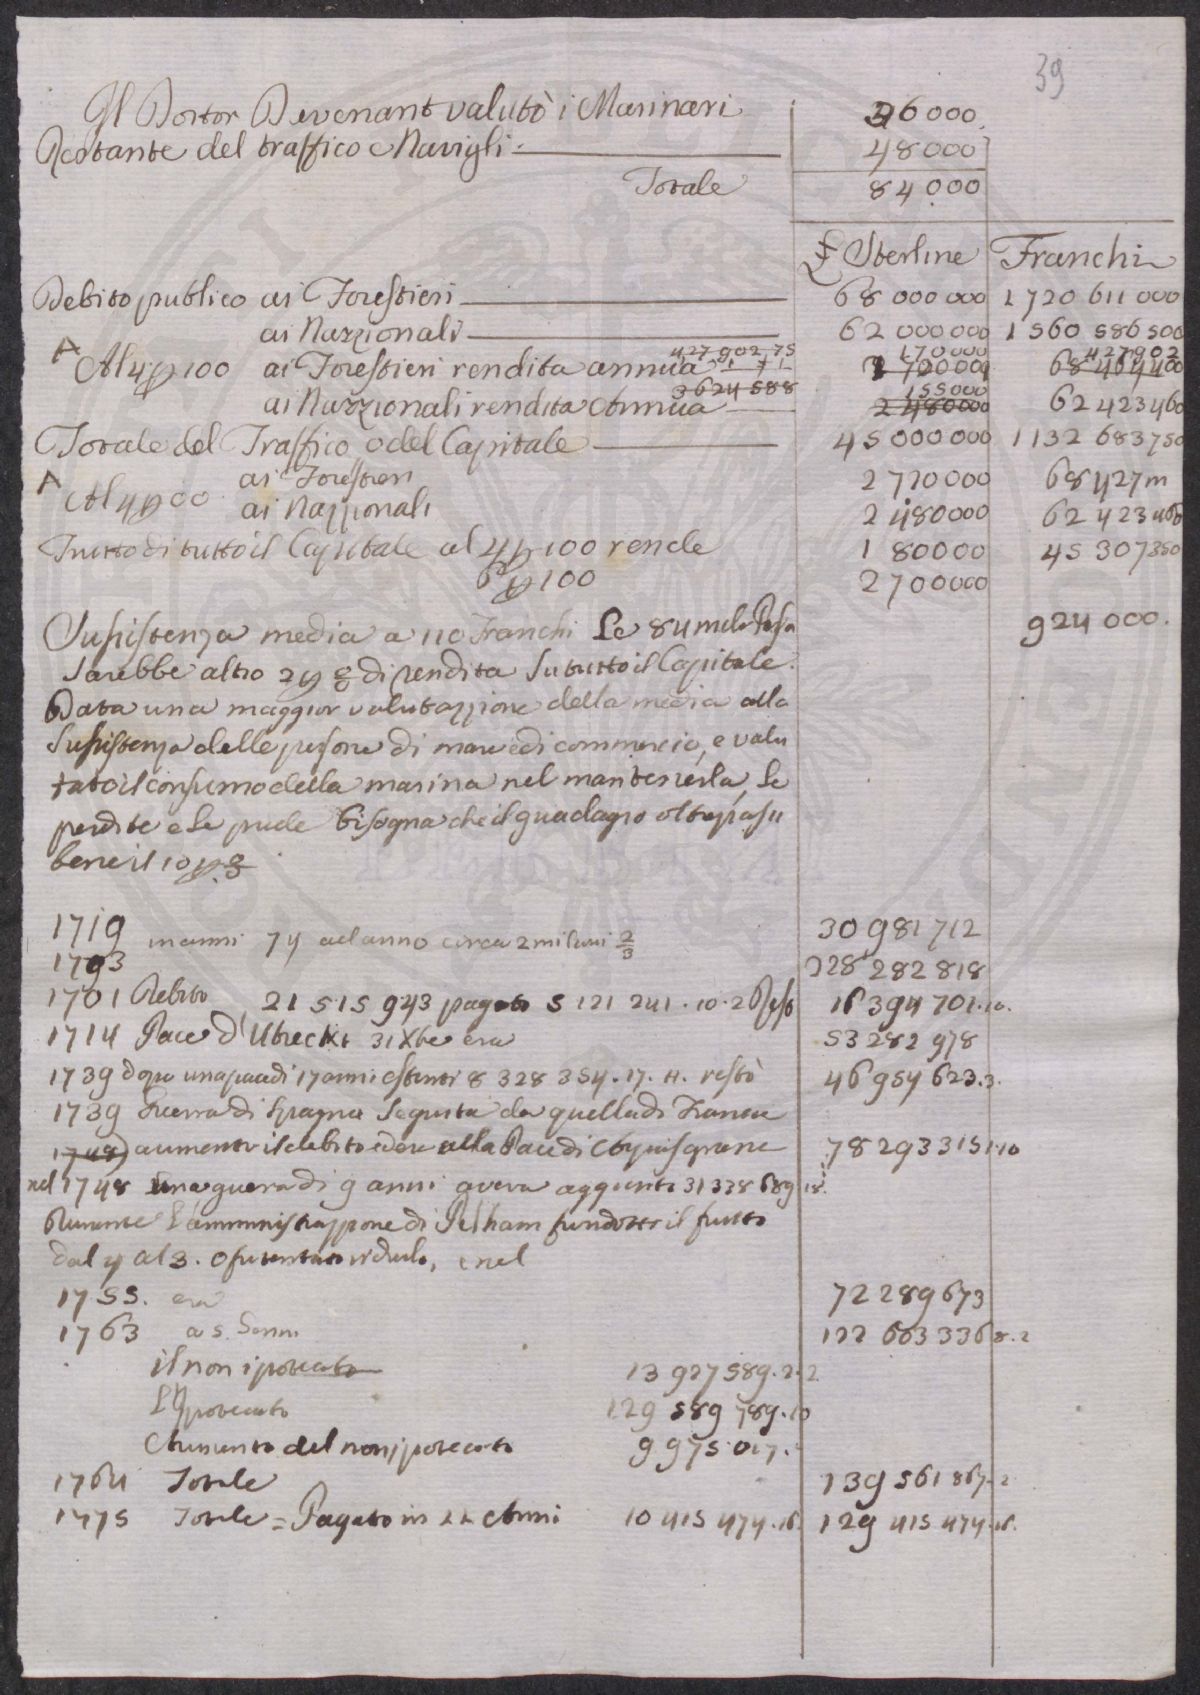 39
Il Dottor Devenant valutò i Marinari 36 000
Restante del traffico e Navigli. 48 000
Totale 84 000
£ Sterline Franchi
Debito publico ai Forestieri 68 000 000 1720 611 000
ai Nazzionali 62 000 000 1560 586 500
427 902 75 170 000 427902
A Al 4 p 100 ai Forestieri rendita annua 2 720 000 68 464400
3624 588 155 000
ai Nazzionali rendita Annua 2 480 000 62 423 460
Totale del Traffico o del Capitale 45 000 000 1132 683 750
ai Forestieri 2 720 000 68 427m
A Al 4 p 100 ai Nazzionali 2 480000 62 423 460
Frutto di tutto il Capitale al 4 p 100 rende 1 80000 45 307350
6 p 100 2700000
Susistenza media a 110 Franchi Le 84 mila Perso 924 000.
Sarebbe altro 2 p % di rendita su tutto il Capitale.
Data una maggior valutazzione della media alla
Susistenza delle persone di mare e di commercio, e valu
tato il consumo della marina nel mantenerla, le
perdite e le prede bisogna che il guadagno oltrepassi
bene il 10 p %.
1719 30 981 712
in anni 74 ad anno circa 2 milioni 2/3
1793 228 282 818
1701 Debito 21 515 943 pagato 5 121 241 . 10 . 2 Restò 16 394 701 . 10.
1714 Pace d'Utreckt 31 Xbre era 53 282 978
1739 dopo una pace di 17 anni estinti 8 328 354 . 17 . 11. restò 46 954 623 . 3
1739 Guerra di Spagna seguita da quella di Francia
1748 aumentò il debito ed era alla Pace di Aquisgrane 78 293 315 1.10
nel 1748 Una guerra di 9 anni aveva aggiunto 31 338 689 18
Durante l'amministrazzione di Pelham fu ridotto il frutto
dal 4 al 3. e nel
1755. era 72 289 673
1763 a 5. Genn 122 603 336 8 . 2
il non ipotecato 13 927 589 . 2 . 2
L'Ipotecato 129 589 789 . 10
Aumento del non ipotecato 9 975 017.
1764 Totale 139 561 867 . 2
1775 Totale = Pagato in 11 Anni 10 415 474 . 16. 129 415 474 . 16.